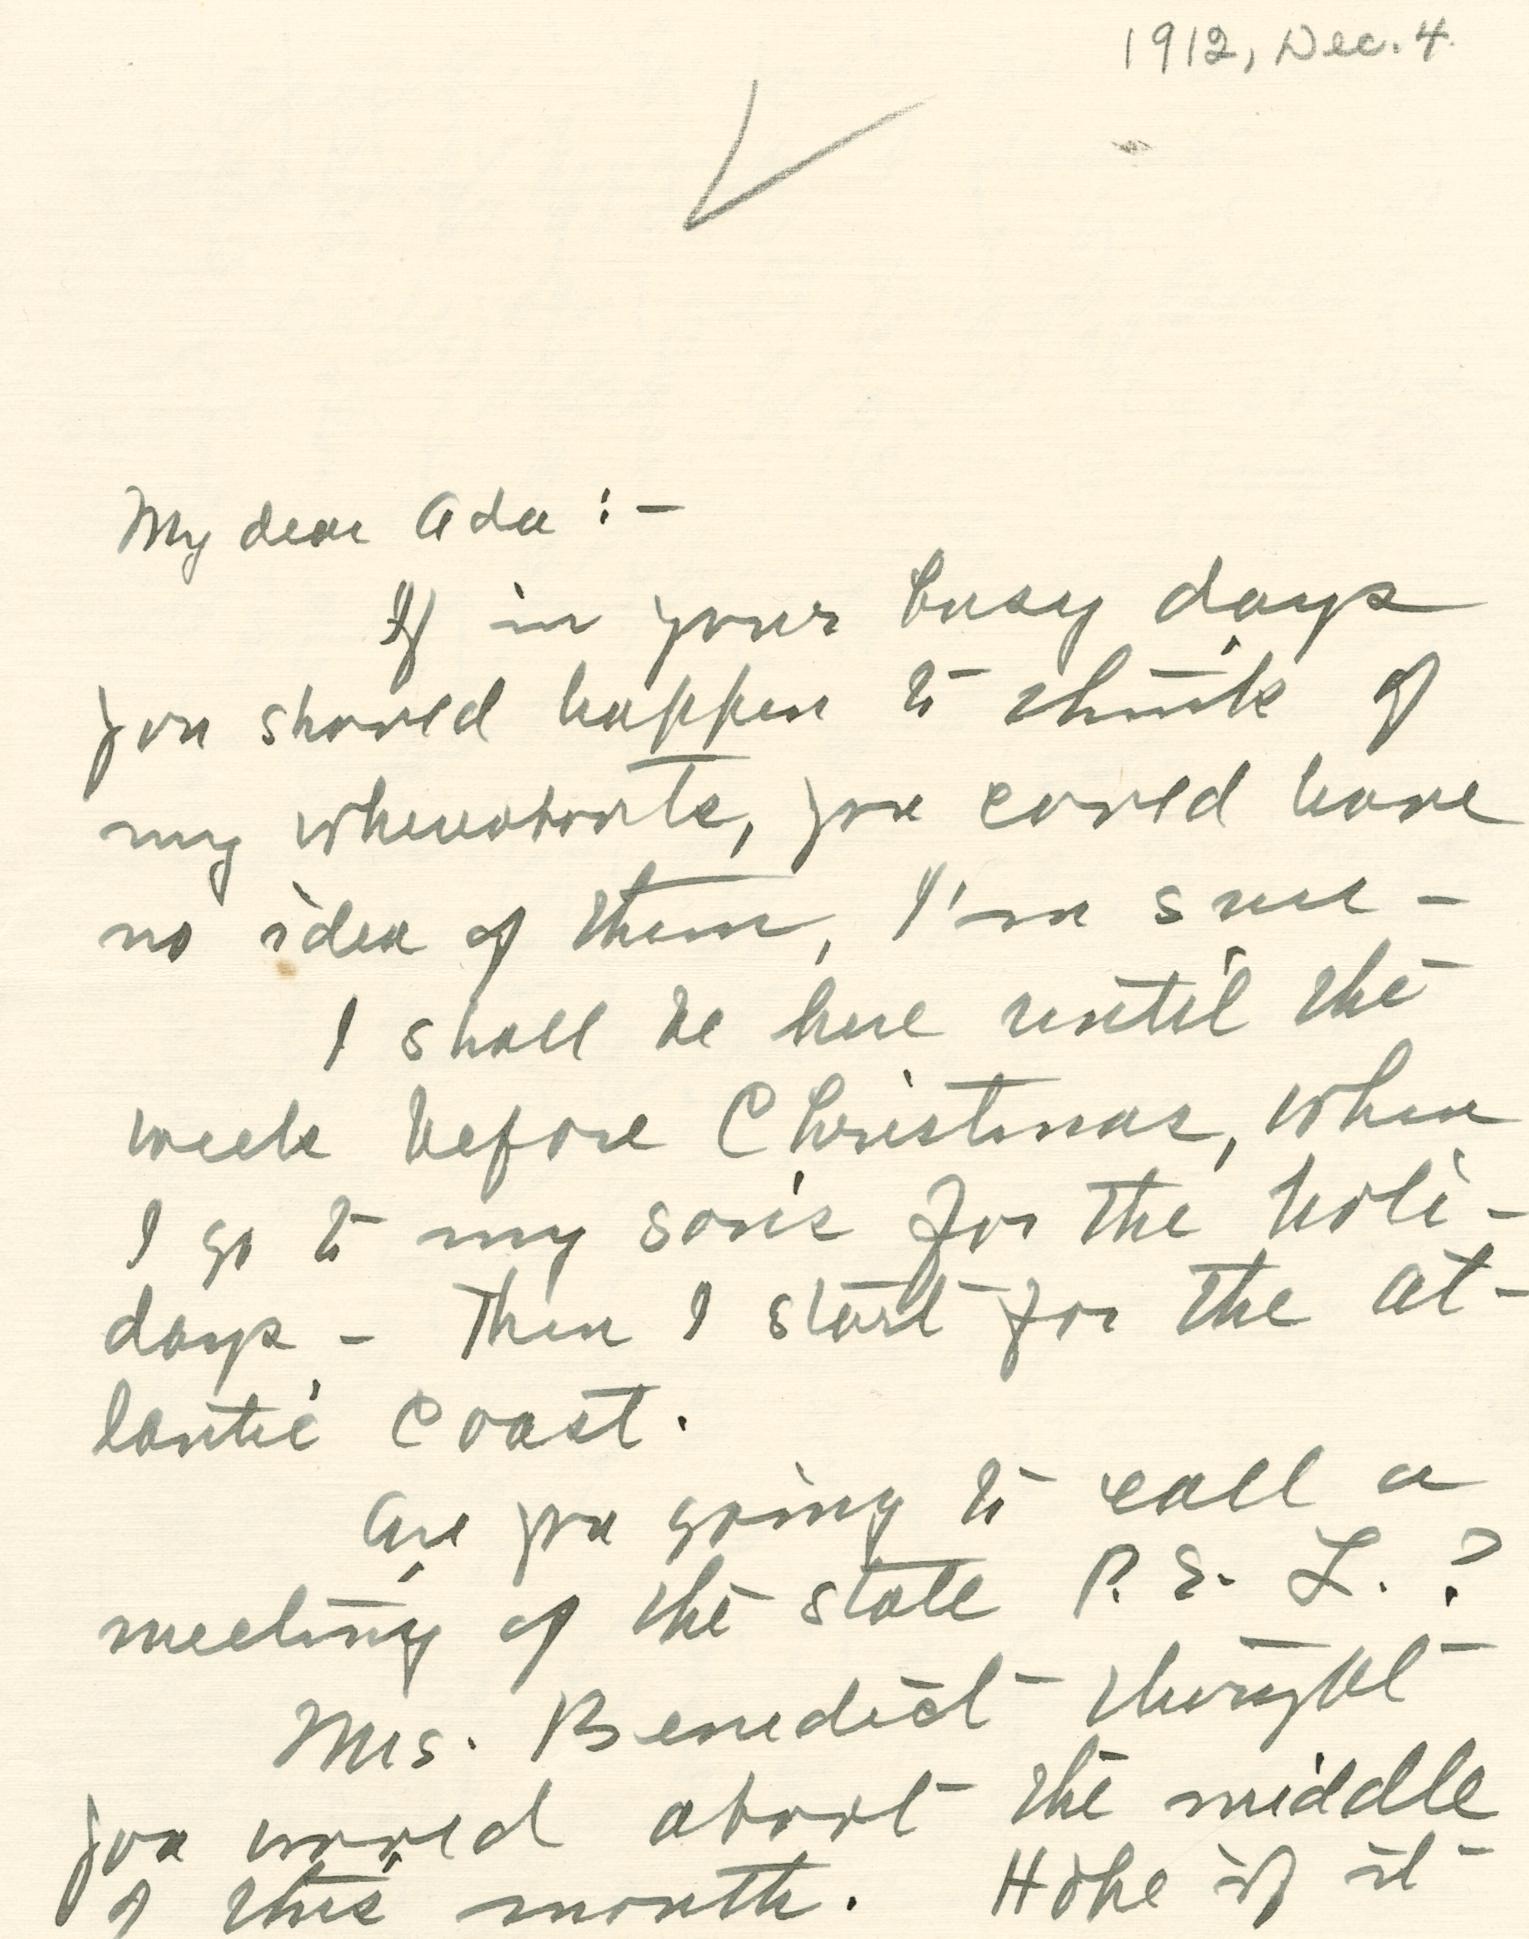 1912, Dec. 4.
My dear Ada :-
If in your busy days
you should happen to think of
my whereabouts, you could have
no idea of them, I'm sure -
I shall be here until the
week before Christmas, when
I go to my son's for the holi-
days - Then I start for the At-
lantic Coast.
Are you going to call a
meeting of the state P. E. L. ?
Mrs. Benedict thought
you would about the middle
of this month. Hope if it